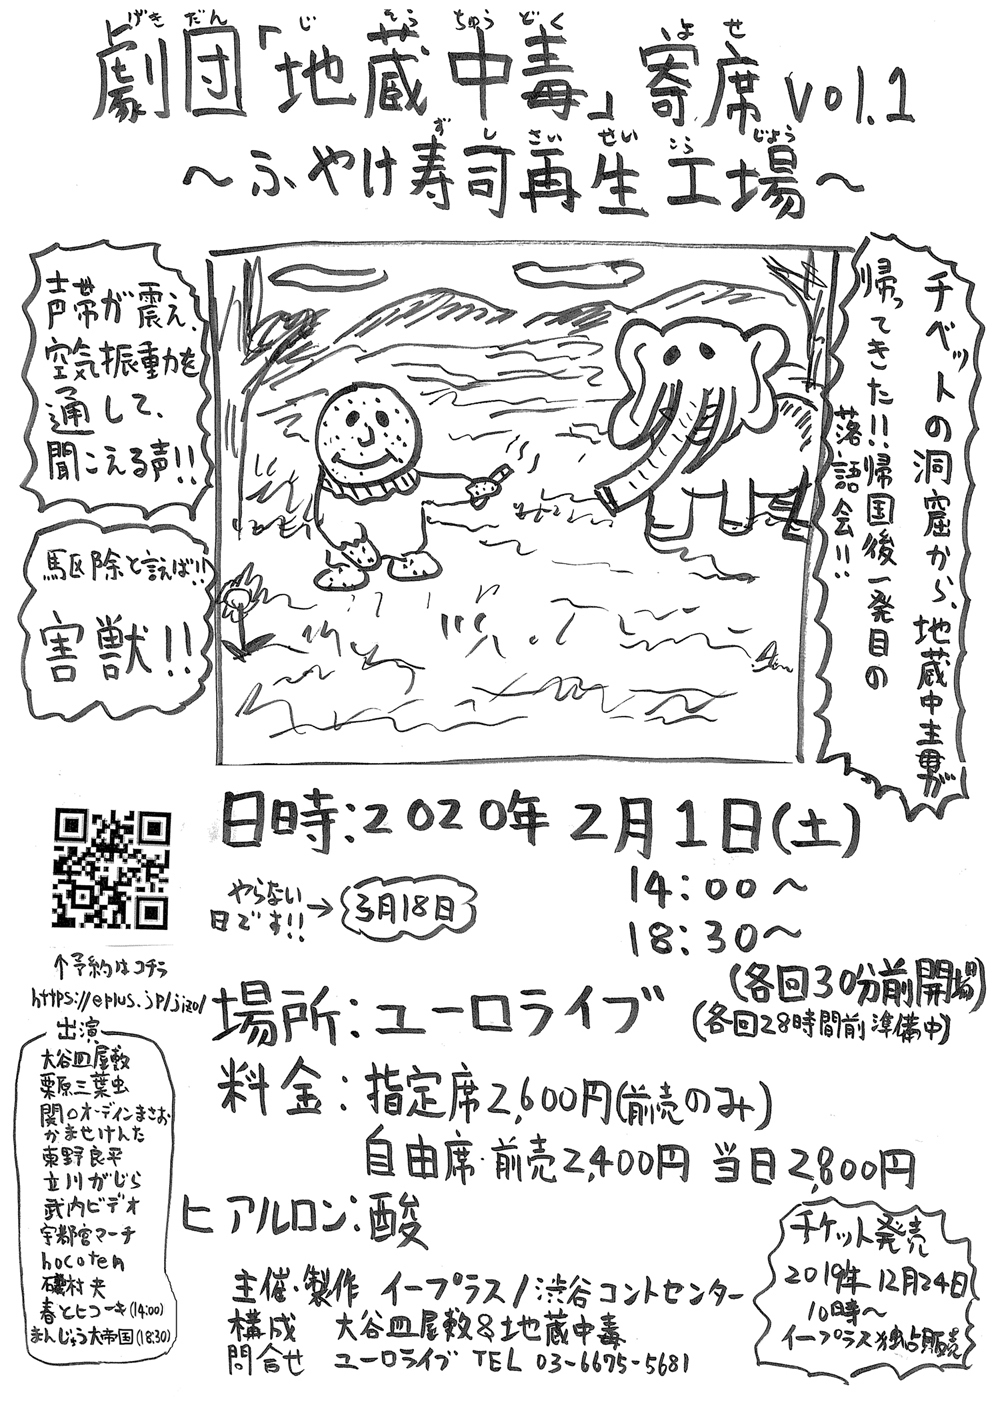 劇団「地蔵中毒」寄席 vol.1
げきだん じぞうちゅうどく よせ
～ふやけ寿司再生工場～
ずし さいせい こうじょう
チベットの洞窟から、地蔵中主男が
帰ってきた!!帰国後一発目の
落語会!!
声帯が震え、
空気振動を
通して、
聞こえる声!!
駆除と言えば!!
害獣!!
日時:2020年2月1日(土)
14:00～
18:30～
やらない
日です!!→
3月18日
(各回30分前開場)
(各回28時間前準備中)
↑予約はコチラ
https://eplus.jp/jizo/
場所:ユーロライブ
料金:指定席2,600円(前売のみ)
自由席・前売2,400円 当日2,800円
ヒアルロン:酸
出演
大谷皿屋敷
栗原三葉虫
関口オーディンまさお
かませけんた
東野良平
立川がじら
武内ビデオ
宇都宮マーチ
hocoten
磯村央
春とヒコーキ(14:00)
まんじゅう大帝国(18:30)
主催・製作 イープラス/渋谷コントセンター
構成 大谷皿屋敷&地蔵中毒
問合せ ユーロライブ TEL 03-6675-5681
チケット発売
2019年12月24日
10時～
イープラス独占販売